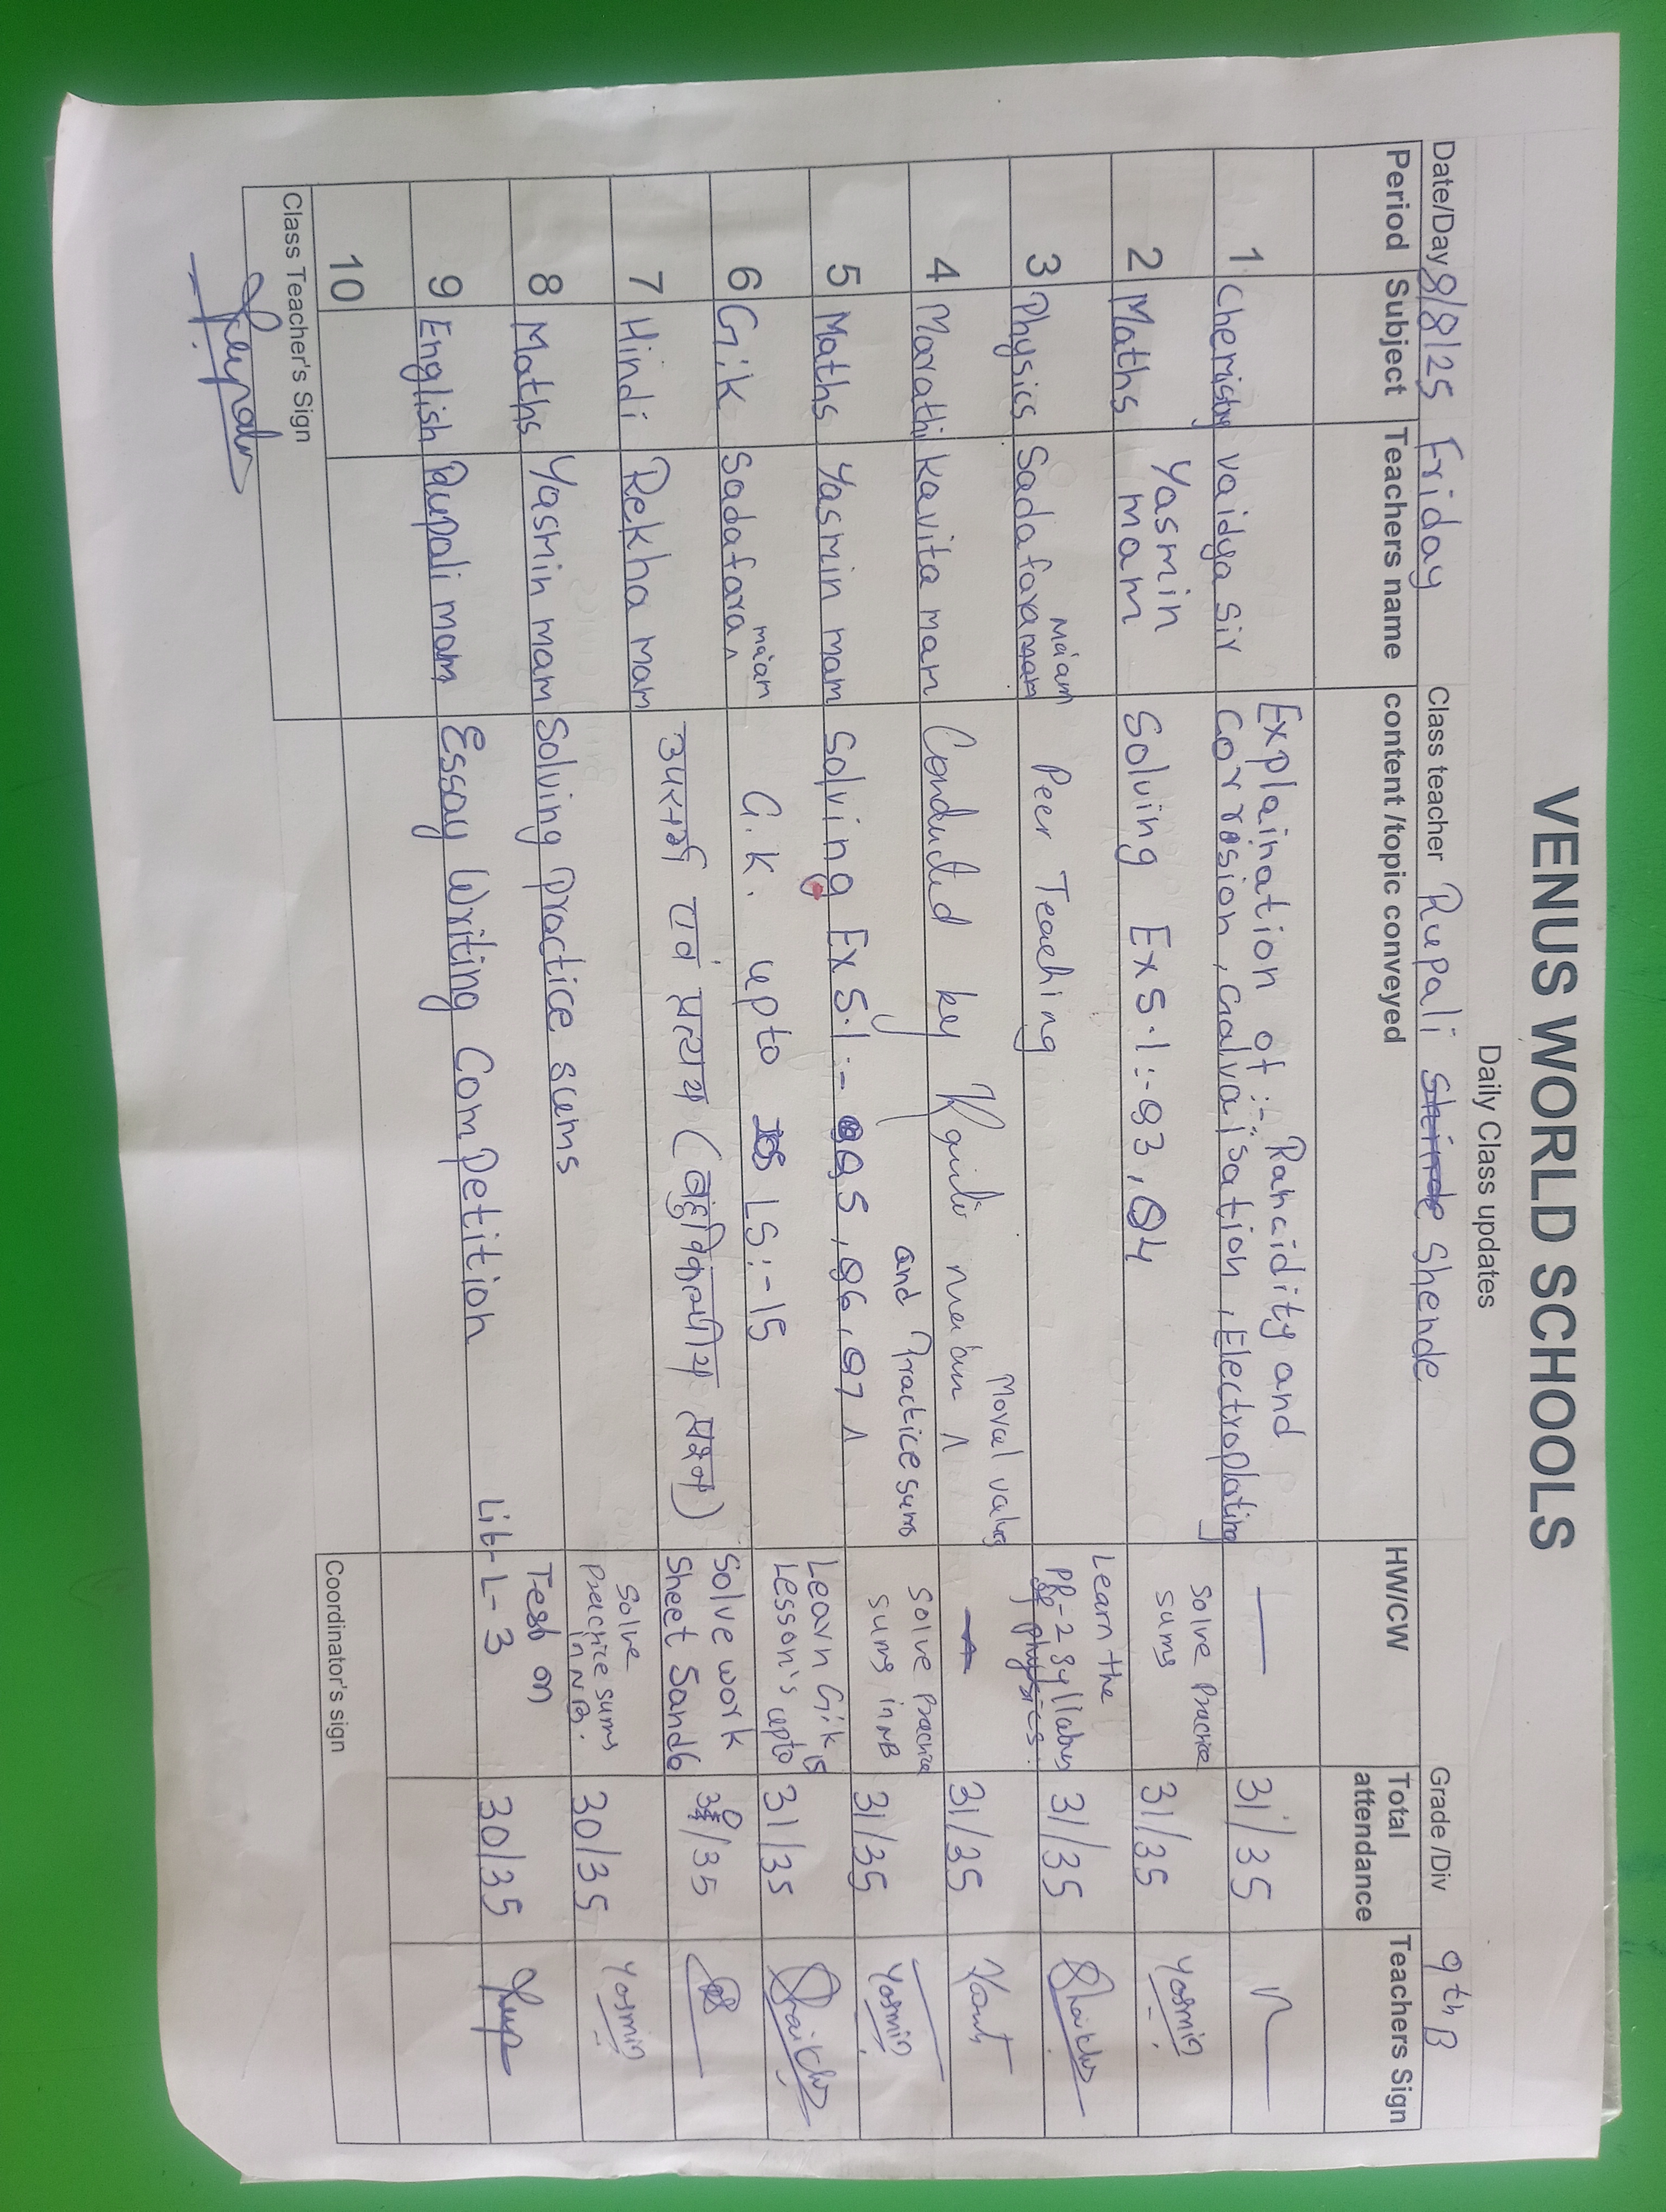 VENUS WORLD SCHOOLS
Daily Class updates
Date/Day 8/8/25 Friday Class teacher Rupali Shinde Shende Grade /Div 9th B
Period Subject Teachers name content /topic conveyed HW/CW Total attendance Teachers Sign
Explaination of :- Rancidity and
1 Chemistry vaidya sir Corrosion, Galvalisation, Electroplating — 31/35
2 Maths Yasmin mam Solving Ex 5.1 :- Q3, Q4 Solve Practice sums 31/35 Yasmin
3 Physics Sadafara mam ma'am Peer Teaching Learn the PR-2 syllabus of physics. 31/35 Shaikh
4 Marathi Kavita mam Conducted key Moral values 31/35
5 Maths Yasmin mam Solving Ex 5.1 :- Q5, Q6, Q7 and Practice sums Solve Practice sums in NB 31/35 Yasmin
6 G.K Sadafara ma'am G.K. upto LS :- 15 Learn G.K Lesson's upto 15 31/35 Shaikh
7 Hindi Rekha mam उपसर्ग एवं प्रत्यय (बहुविकल्पीय प्रश्न) Solve work Sheet 5 and 6 30/35
8 Maths Yasmin mam Solving Practice sums Solve Practice sums in NB. 30/35 Yasmin
9 English Rupali mam Essay Writing Competition Test on Lit-L-3 30/35
10
Class Teacher's Sign Coordinator's sign